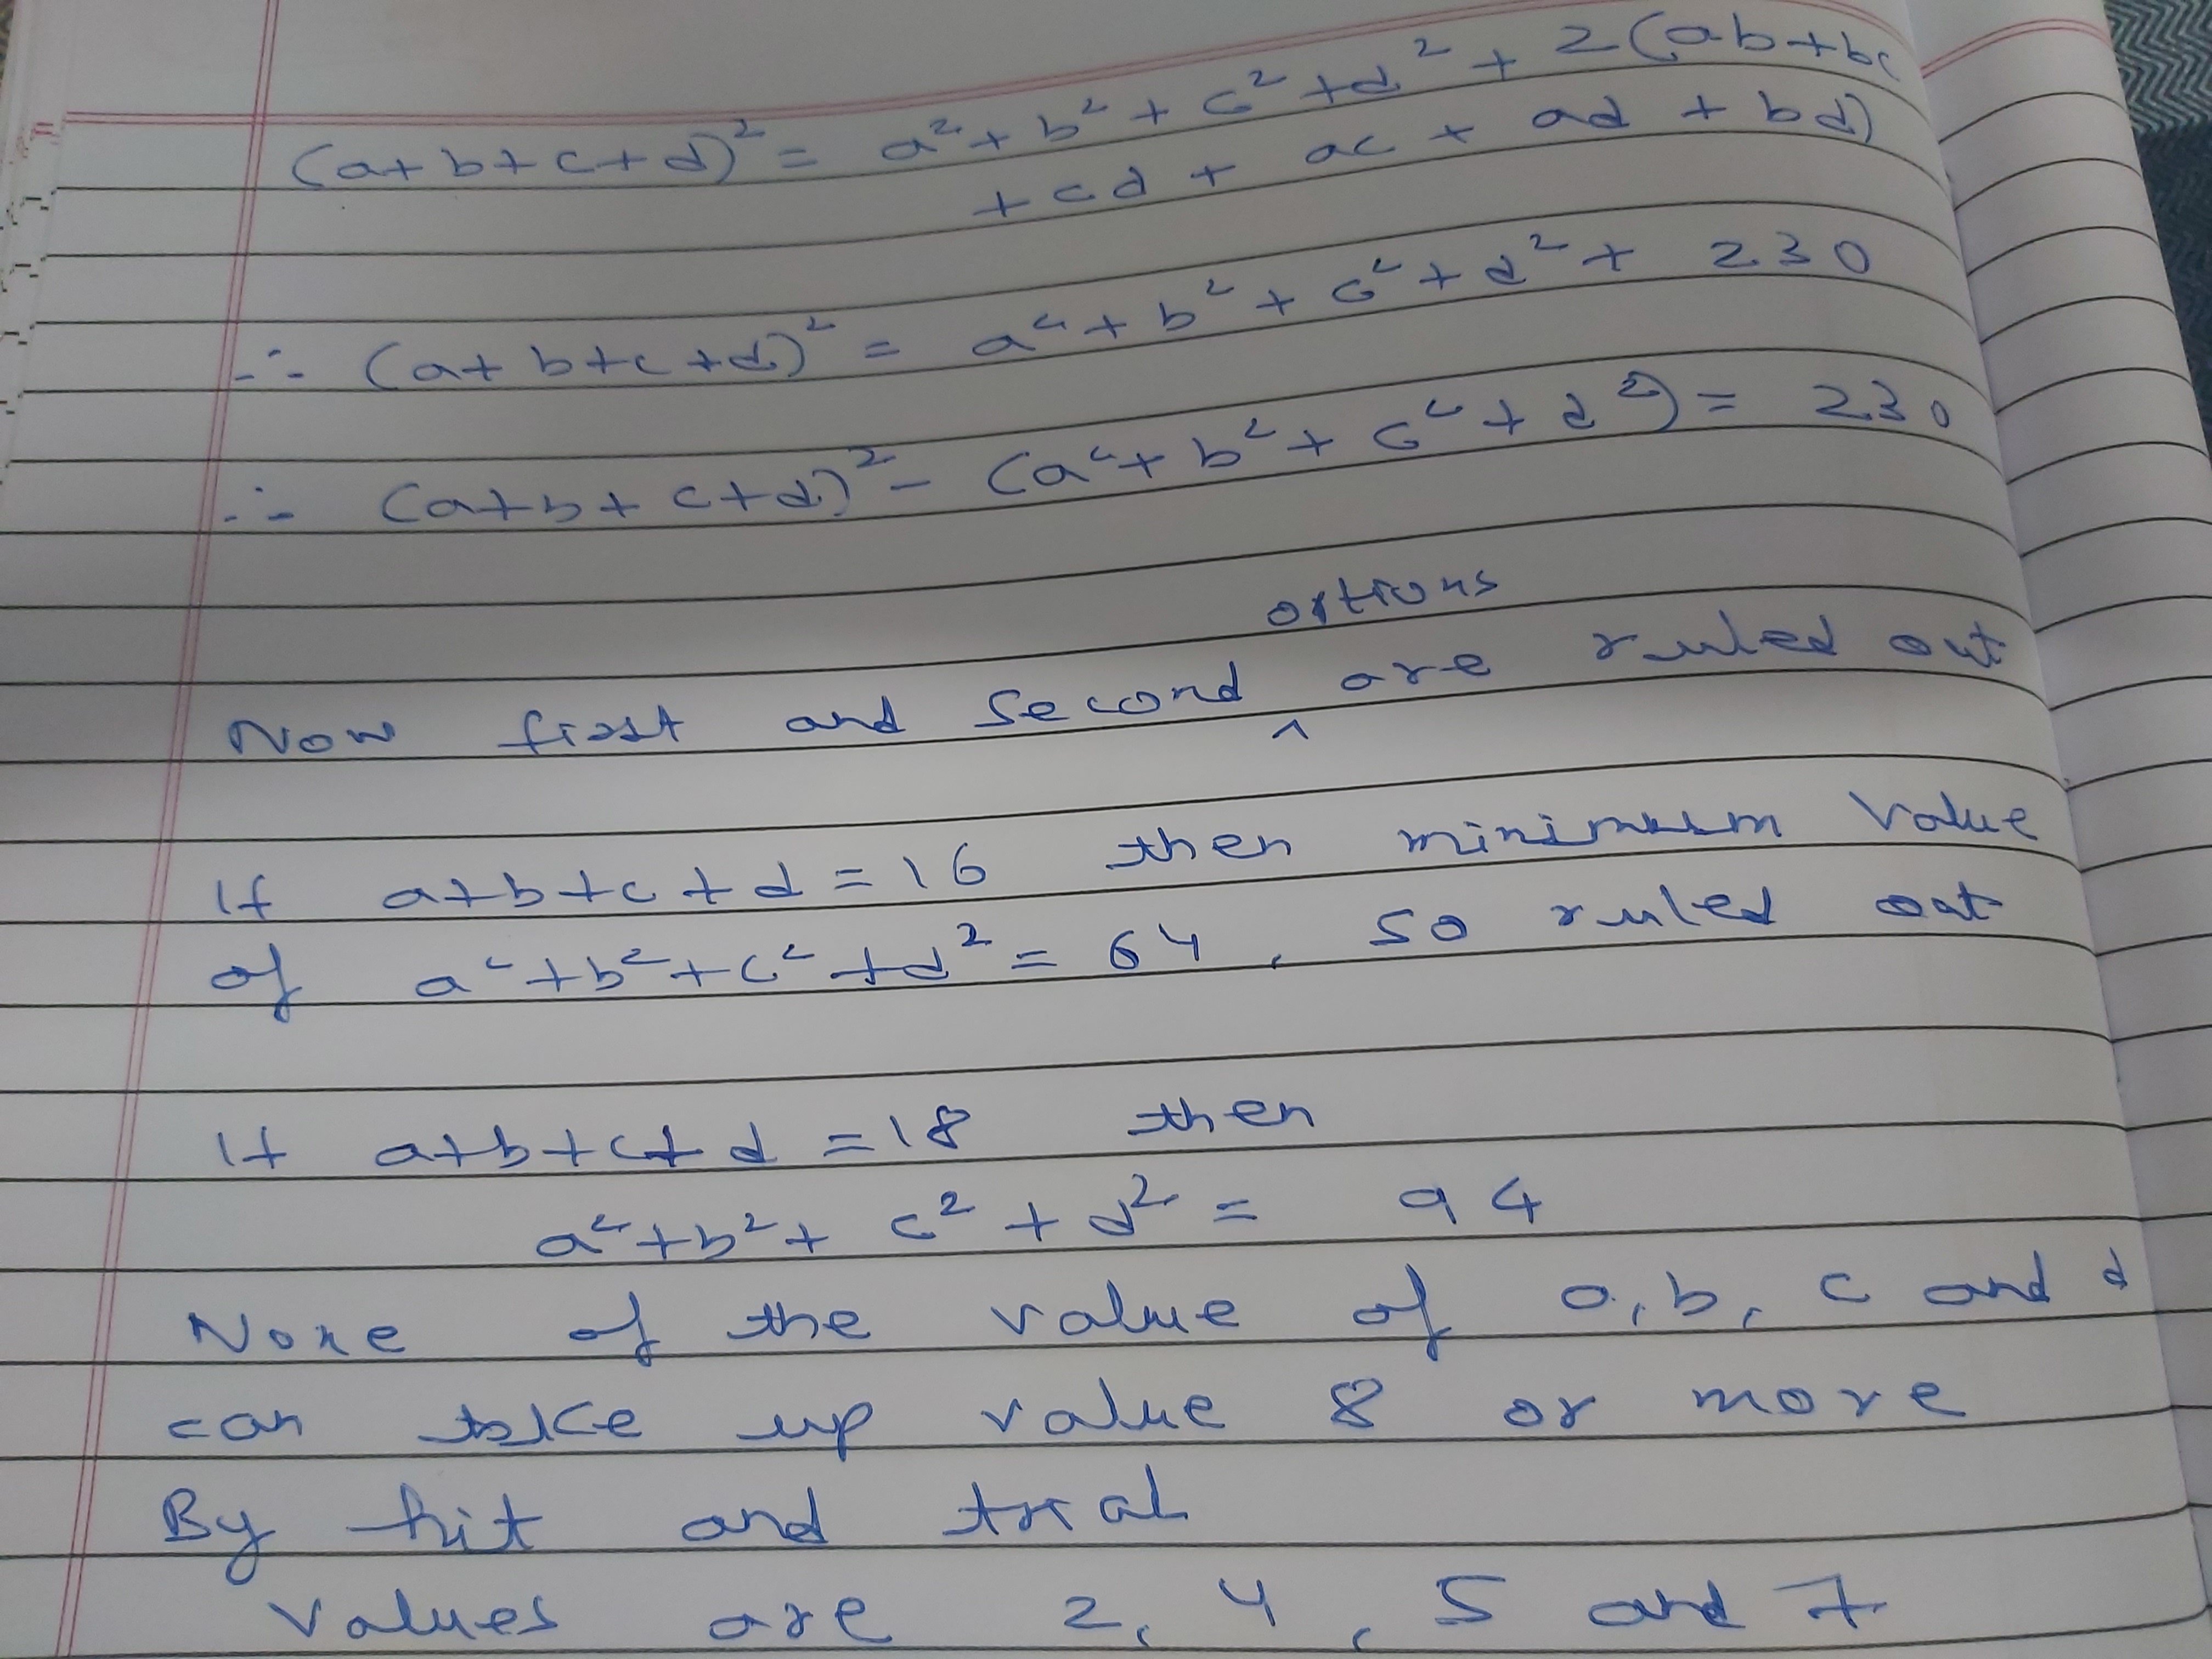 (a+b+c+d)² = a²+b²+c²+d²+2(ab+bc
+cd+ac+ad+bd)
∴ (a+b+c+d)² = a²+b²+c²+d²+ 230
∴ (a+b+c+d)² - (a²+b²+c²+d²) = 230
options
Now first and second ^ are ruled out
If a+b+c+d = 16 then minimum value
of a²+b²+c²+d² = 64, so ruled out
If a+b+c+d = 18 then
a²+b²+c²+d² = 94
None of the value of a, b, c and d
can take up value 8 or more
By hit and trial
values are 2, 4, 5 and 7